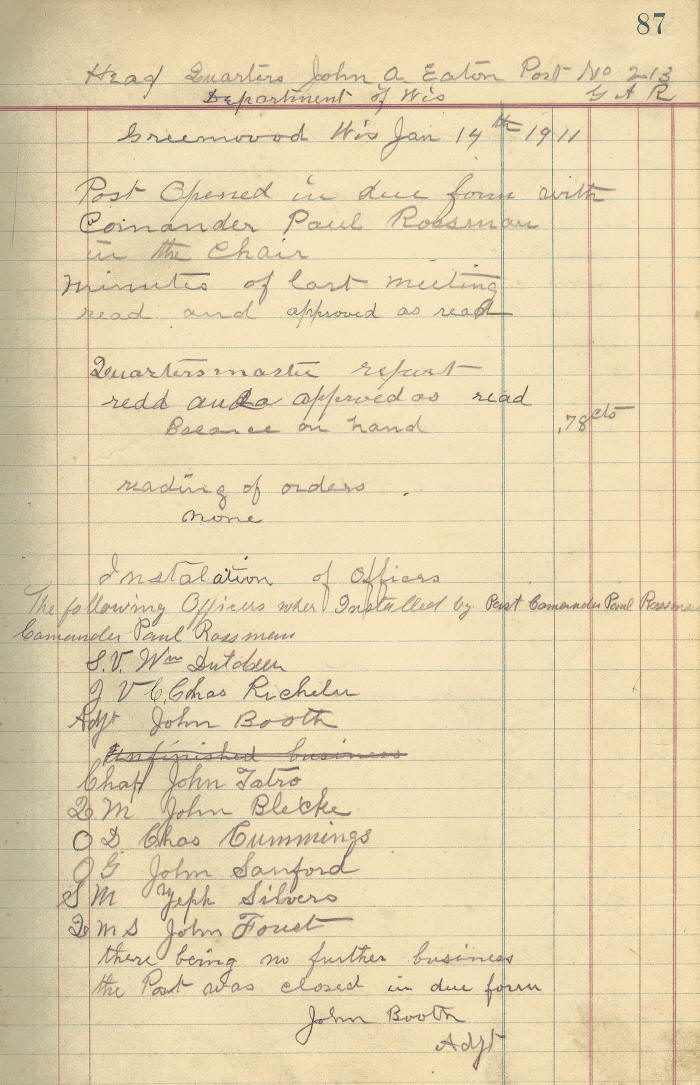 87
Head Quarters John A. Eaton Post No 213
Department of Wis G A R
Greenwood Wis Jan 14th 1911
Post Opened in due form with
Comander Paul Rossman
in the Chair
minutes of last meeting
read and approved as read
Quartersmaster repurt
redd and approved as read
Balance on hand .78cts
reading of orders .
none
Instalation of Officers
The following Officers wher Installed by Past Comander Paul Rossman
Comander Paul Rossman
S.V. Wm
J V C. Chas
Adjt John Booth
Unfinished business
Chap John Tatro
Q M John Blecke
O D Chas Cummings
O G John Sanford
S M Zeph Silvers
Q M S John Foust
there being no further business
the Post was closed in due form
John Booth
Adjt